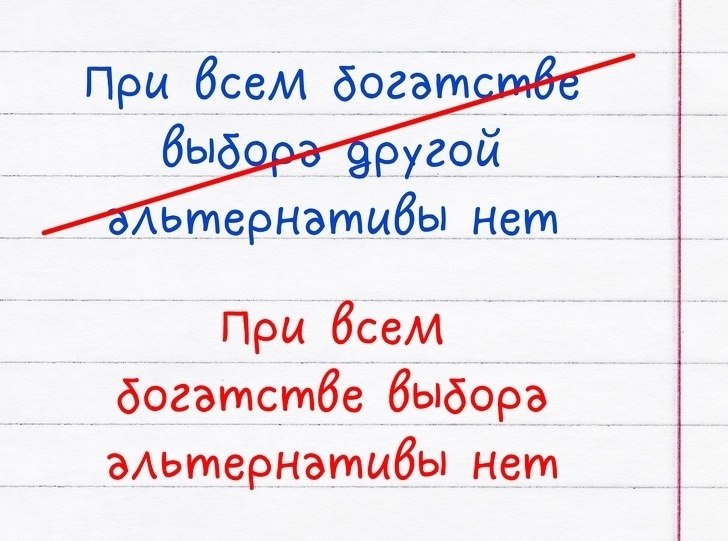 При всем богатстве
выбора другой
альтернативы нет
При всем
богатстве выбора
альтернативы нет